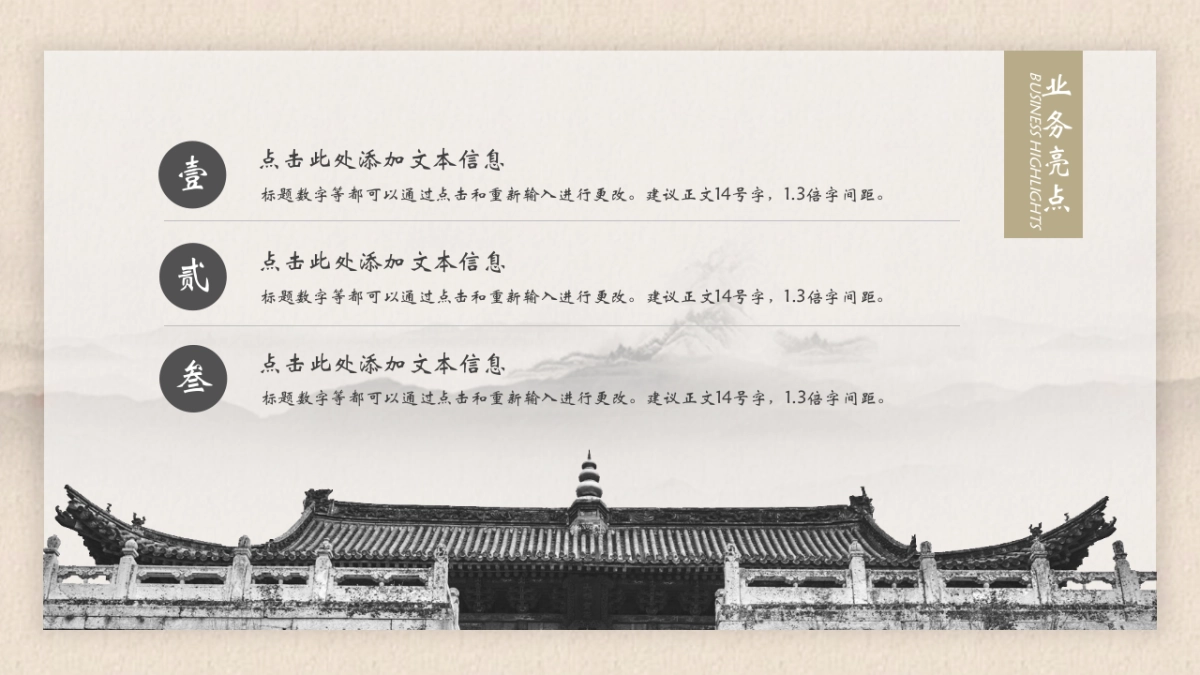 业务亮点
BUSINESS HIGHLIGHTS
壹
点击此处添加文本信息
标题数字等都可以通过点击和重新输入进行更改。建议正文14号字，1.3倍字间距。
贰
点击此处添加文本信息
标题数字等都可以通过点击和重新输入进行更改。建议正文14号字，1.3倍字间距。
叁
点击此处添加文本信息
标题数字等都可以通过点击和重新输入进行更改。建议正文14号字，1.3倍字间距。